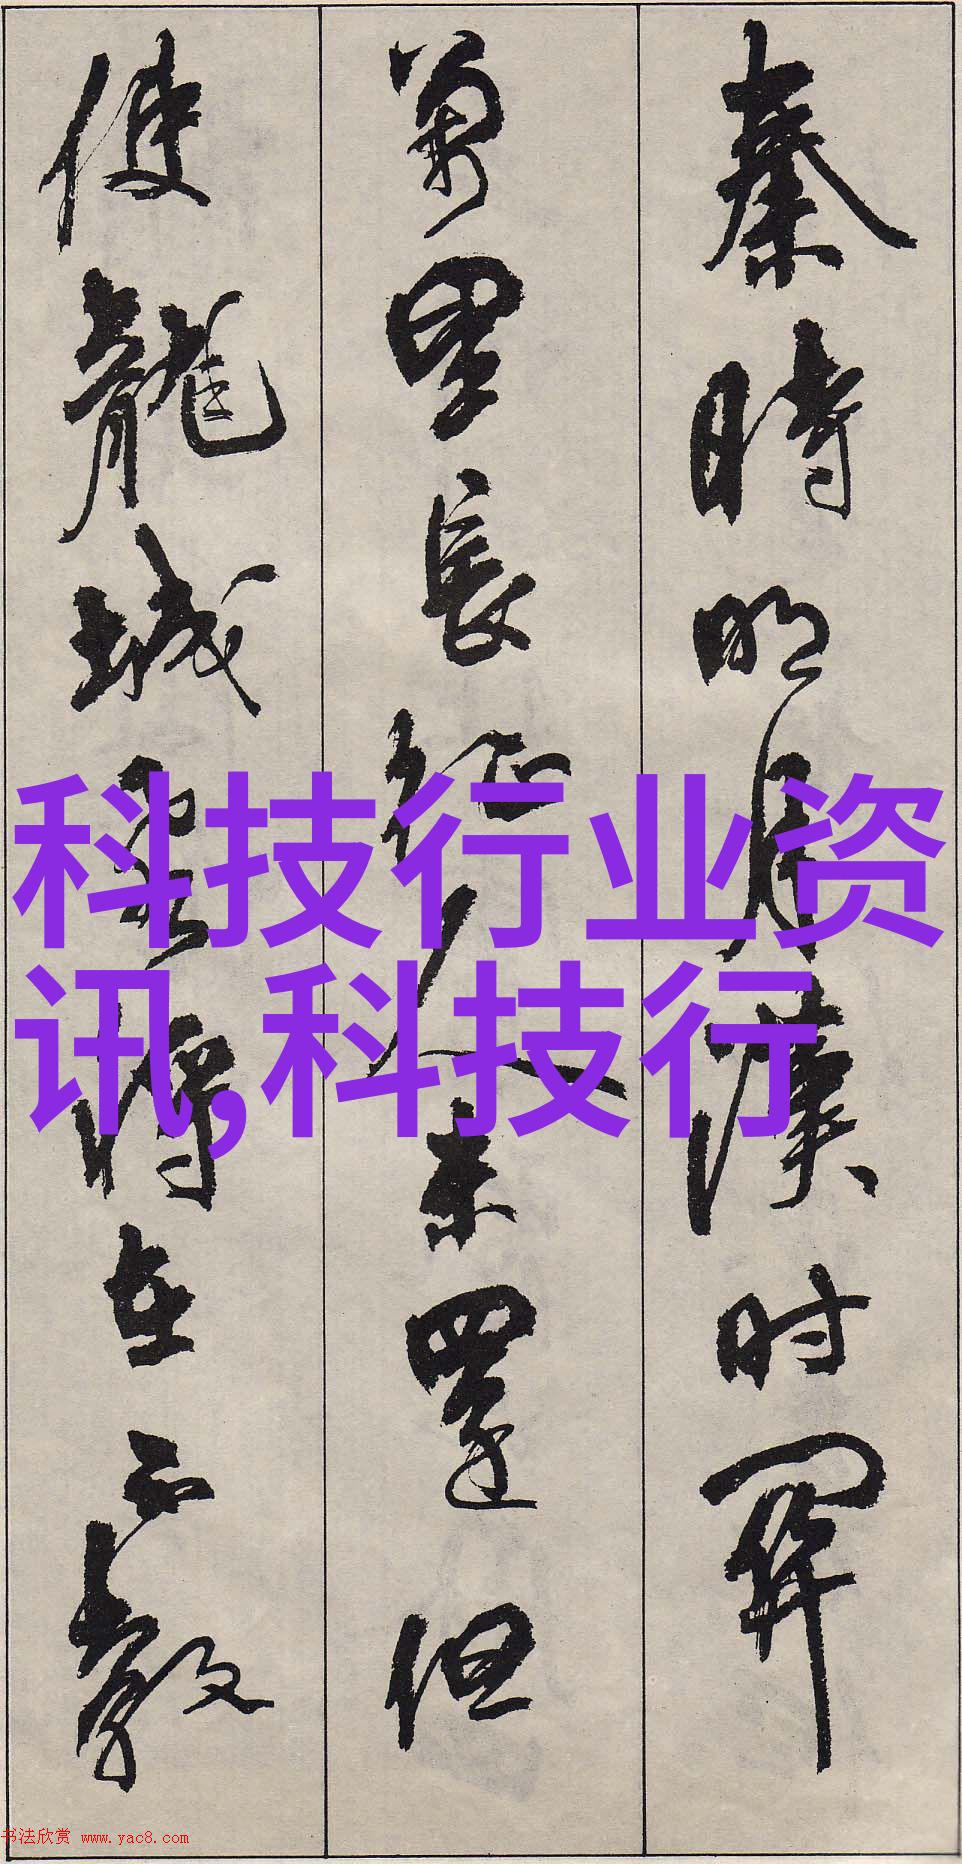 秦時明月漢时関
萬里長征人未還但
使龍城飛將在不教
科技行业资
讯,科技行
书法欣赏 www.yac8.com